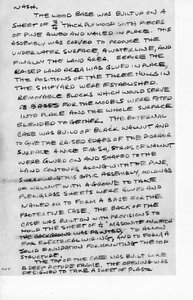 WASH.
THE WOOD BASE WAS BUILT UP ON A
SHEET OF 3/4" THICK PLYWOOD WITH PIECES
OF PINE GLUED AND NAILED IN PLACE. THIS
ASSEMBLY WAS CARVED TO PRODUCE THE
UNDERWATER SURFACE & WATERLINE, AND
FINALLY THE LAND AREA. BEFORE THE
RAISED LAND AREA WAS GLUED IN PLACE,
THE POSITIONS OF THE THREE HULLS IN
THE SHIPYARD WERE ESTABLISHED.
REMOVABLE BLOCKS WHICH WOULD SERVE
AS BASES FOR THE MODELS WERE FITTED
INTO PLACE AND THE WHOLE SURFACE
BLENDED TOGETHER. THE EXTERNAL
CASE WAS BUILD OF BLACK WALNUT AND
TO GIVE THE RAISED EDGES OF THE DIORAMA
SURFACE A NICE FINISH, STRIPS OF WALNUT
WERE GLUED ON AND SHAPED TO THE
LAND CONTOURS, ALONG WITH THE PINE.
THIS BASIC ASSEMBLY, MOLDINGS
OF WALNUT WITH A GROOVE TO TAKE
PLEXIGLASS SHEETS WERE GLUED AND
NAILED ON TO FORM A BASE FOR THE
PROTECTIVE CASE. THE BACK OF THE
CASE WAS BUILT WITH PROVISIONS TO
HOLD THE SHEET OF 1/4" MASONITE ON WHICH
THE BACKGROUND WAS PAINTED, TO ALLOW
FOR ELECTRICAL WIRING, AND TO FORM A
SOLID FOUNDATION FOR MOUNTING THE TOP
STRUCTURE.
THE TOP OF THE CASE WAS BUILT LIKE
A DEEP PICTURE FRAME. THE OPENING WAS
DESIGNED TO TAKE A SHEET OF PLASTIC